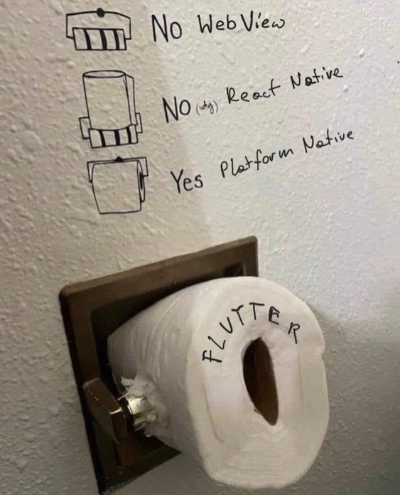 No WebView
No (why) React Native
Yes Platform Native
FLUTTER